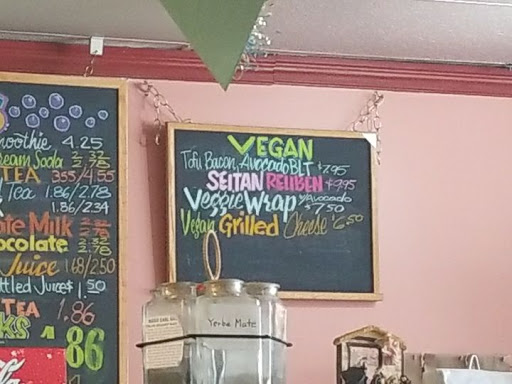 VEGAN
Tofu Bacon, Avocado BLT $7.95
SEITAN REUBEN $9.95
Veggie Wrap w/Avocado $7.50
Vegan Grilled Cheese $6.50
4.25
Cream Soda
TEA 3.55/4.55
Tea 1.86/2.78
1.86/2.34
Milk
Juice 1.68/2.50
Juices 1.50
TEA 1.86
86
Yerba Mate